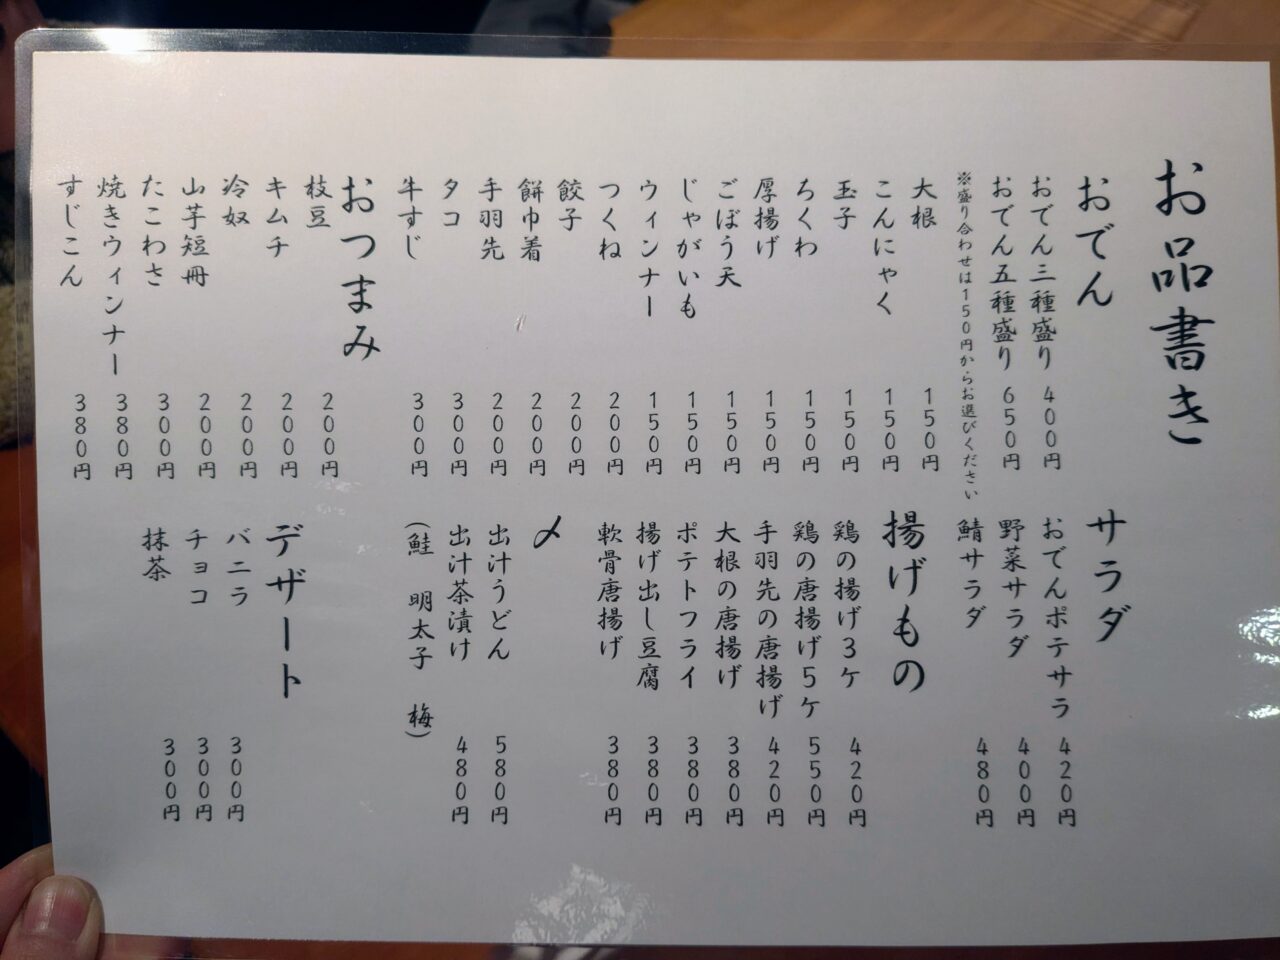 お品書き
おでん
おでん三種盛り 400円
おでん五種盛り 650円
※盛り合わせは150円からお選びください
大根 150円
こんにゃく 150円
玉子 150円
ちくわ 150円
厚揚げ 150円
ごぼう天 150円
じゃがいも 150円
ウィンナー 150円
つくね 200円
餃子 200円
餅巾着 200円
手羽先 200円
タコ 300円
牛すじ 300円
おつまみ
枝豆 200円
キムチ 200円
冷奴 200円
山芋短冊 200円
たこわさ 300円
焼きウィンナー 380円
すじこん 380円
サラダ
おでんポテサラ 420円
野菜サラダ 400円
鯖サラダ 480円
揚げもの
鶏の揚げ3ケ 420円
鶏の唐揚げ5ケ 550円
手羽先の唐揚げ 420円
大根の唐揚げ 380円
ポテトフライ 380円
揚げ出し豆腐 380円
軟骨唐揚げ 380円
〆
出汁うどん 580円
出汁茶漬け 480円
(鮭 明太子 梅)
デザート
バニラ 300円
チョコ 300円
抹茶 300円